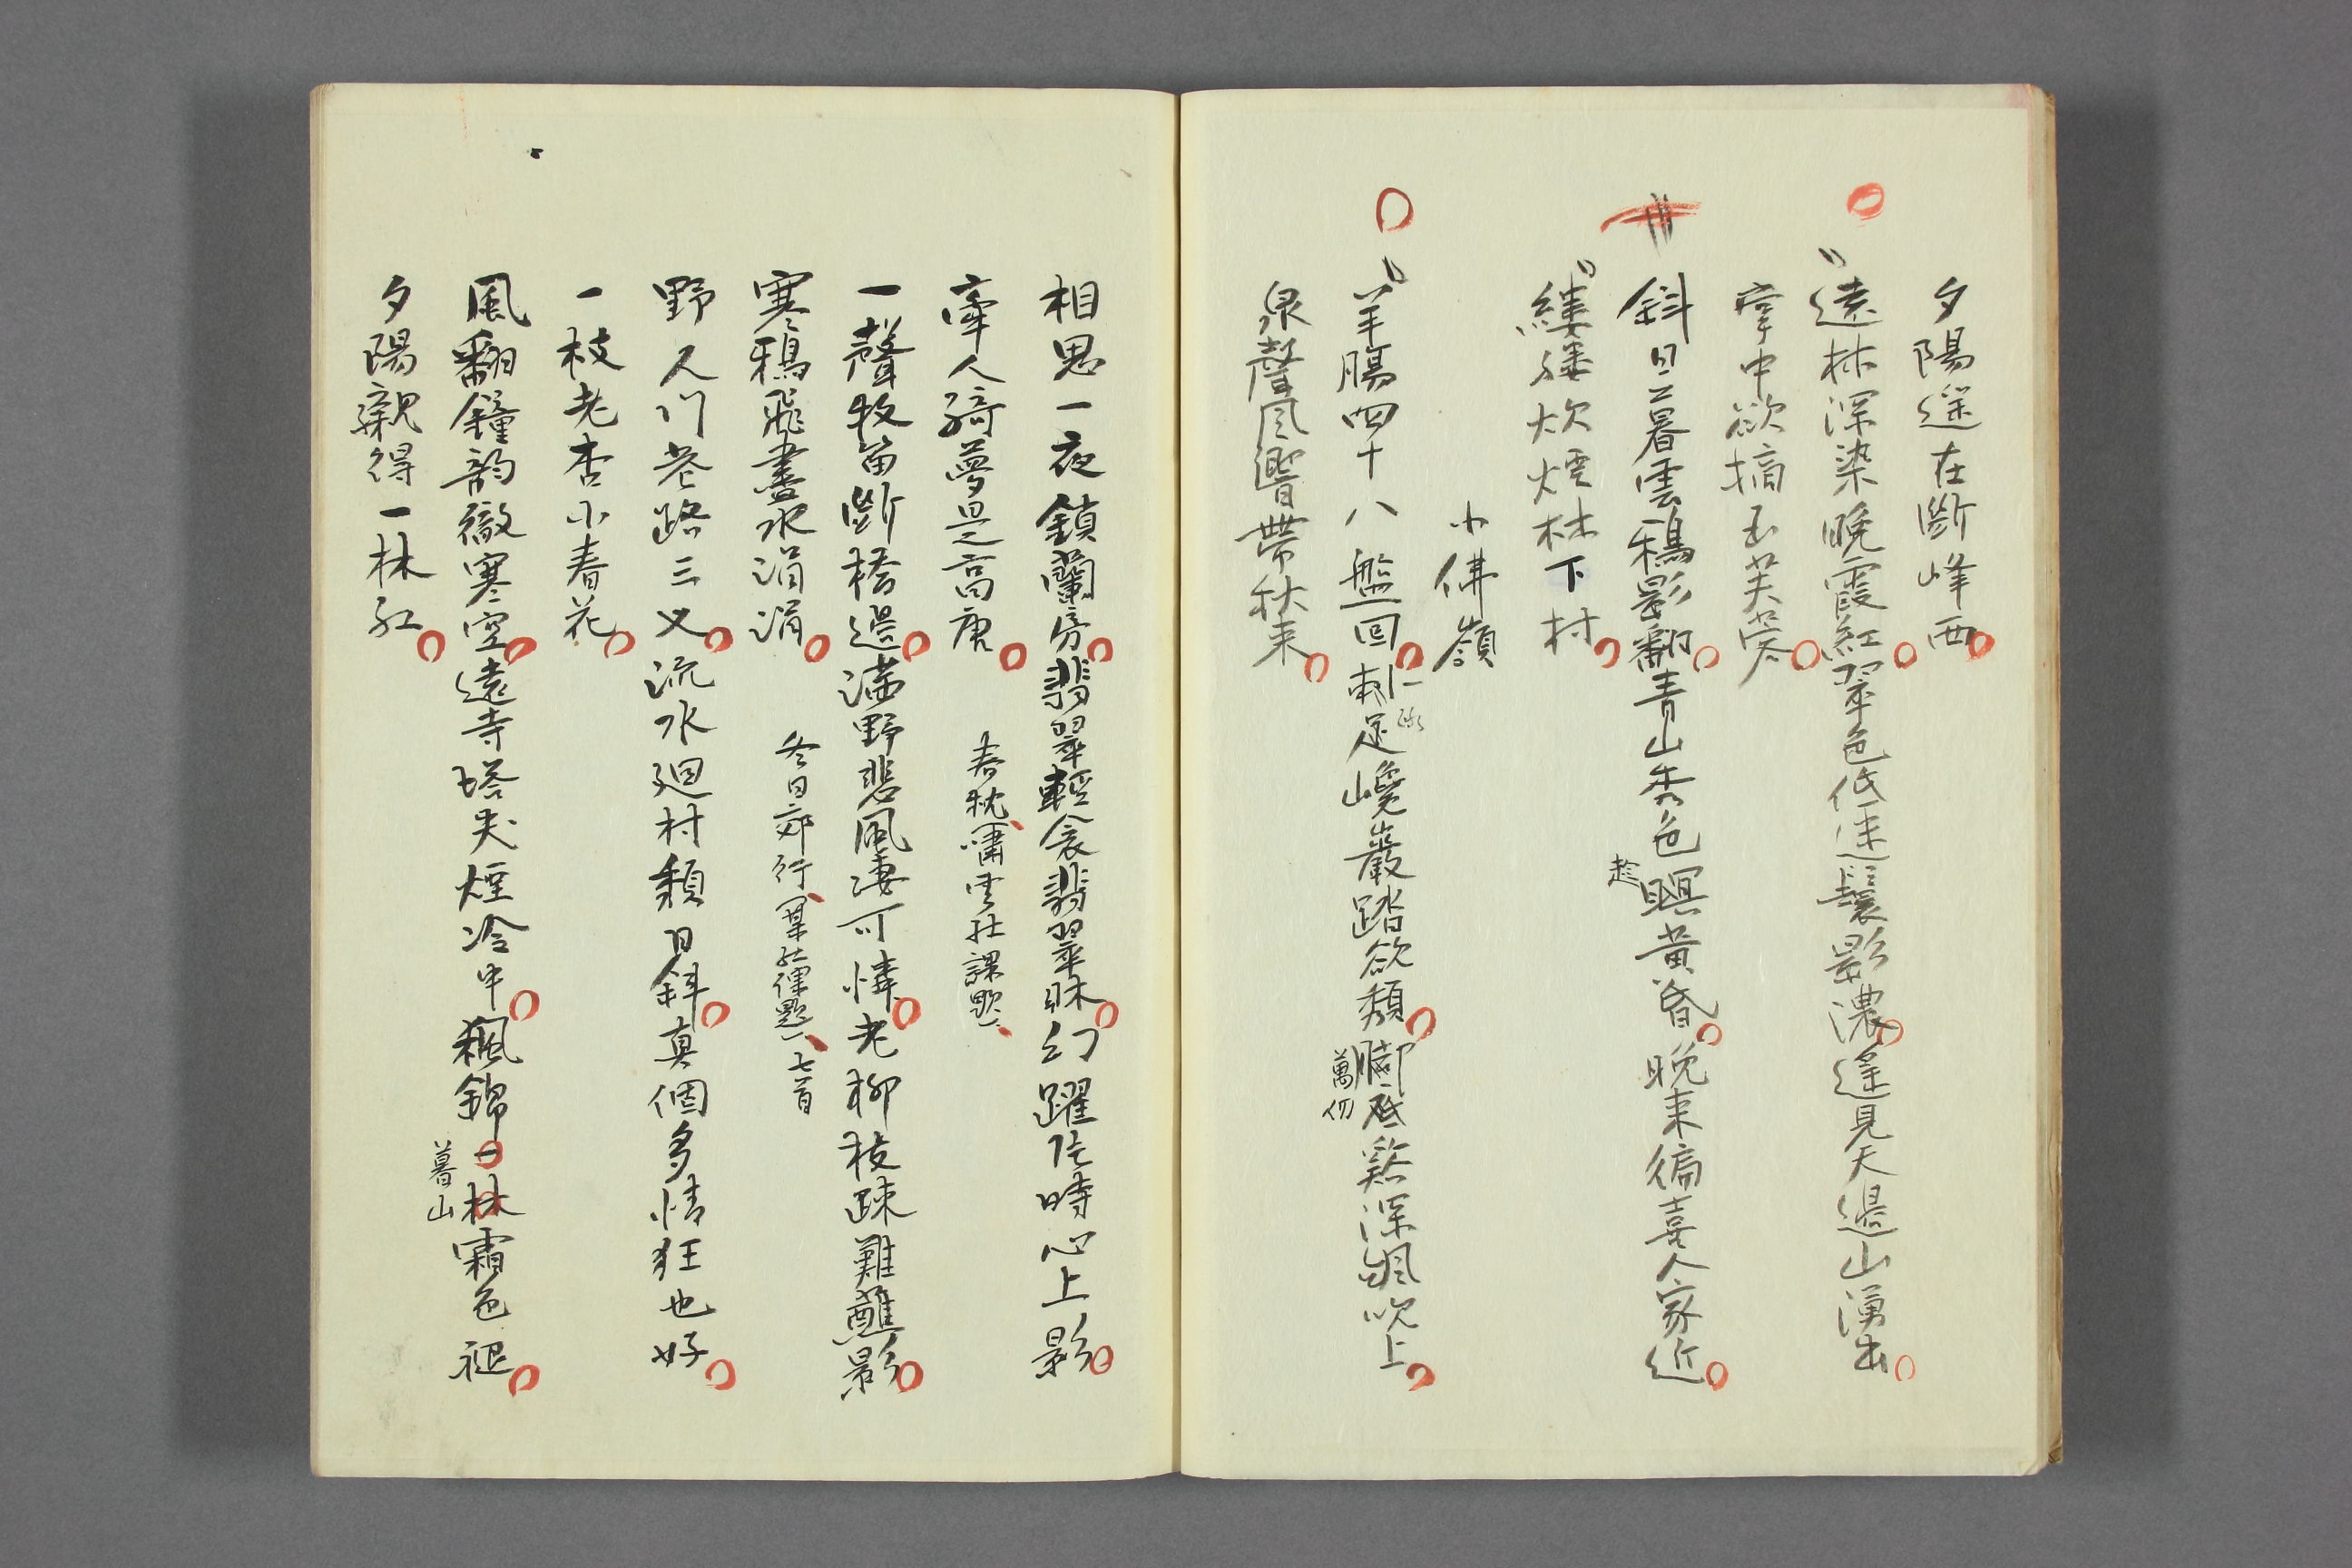 夕陽遥在斷峰西
遠林深染晚霞紅翠色低迷鬟影濃遥見天邊山湧出
掌中欲摘玉芙蓉
斜日已暮雲鴉影翻青山秀色暝黃昏晚来偏喜人家近
趁
縷縷炊煙林下村
小佛嶺
羊腸四十八盤回刺足巉巖踏欲頽脚底谿深颯吹上
萬仞
泉聲風響帶秋来
相思一夜鎖蘭房翡翠輕衾翡翠牀幻躍片時心上影
牽人綺夢是高唐
春枕嘯雲社課題
一聲牧笛斷橋邊满野悲風凄可憐老柳枝疎難蘸影
寒鴉飛盡水涓涓
冬日郊行 社課題 七首
野人門巷路三叉流水廻村頽日斜真個多情狂也好
一枝老杏小春花
風翻鐘韵徹寒空遠寺塔尖煙冷中楓錦一林霜色褪
暮山
夕陽親得一林紅